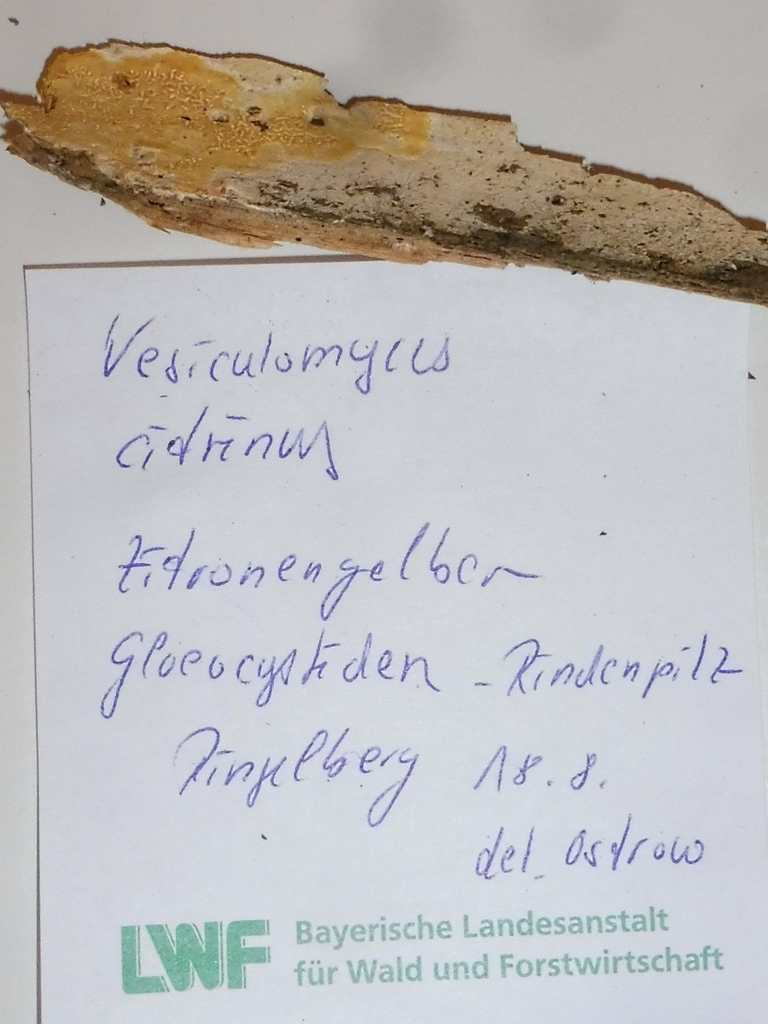 Vesiculomyces
citrinus
Zitronengelber
Gloeocystiden - Rindenpilz
Ringelberg 18.8.
det. Ostrow
LWF Bayerische Landesanstalt
für Wald und Forstwirtschaft